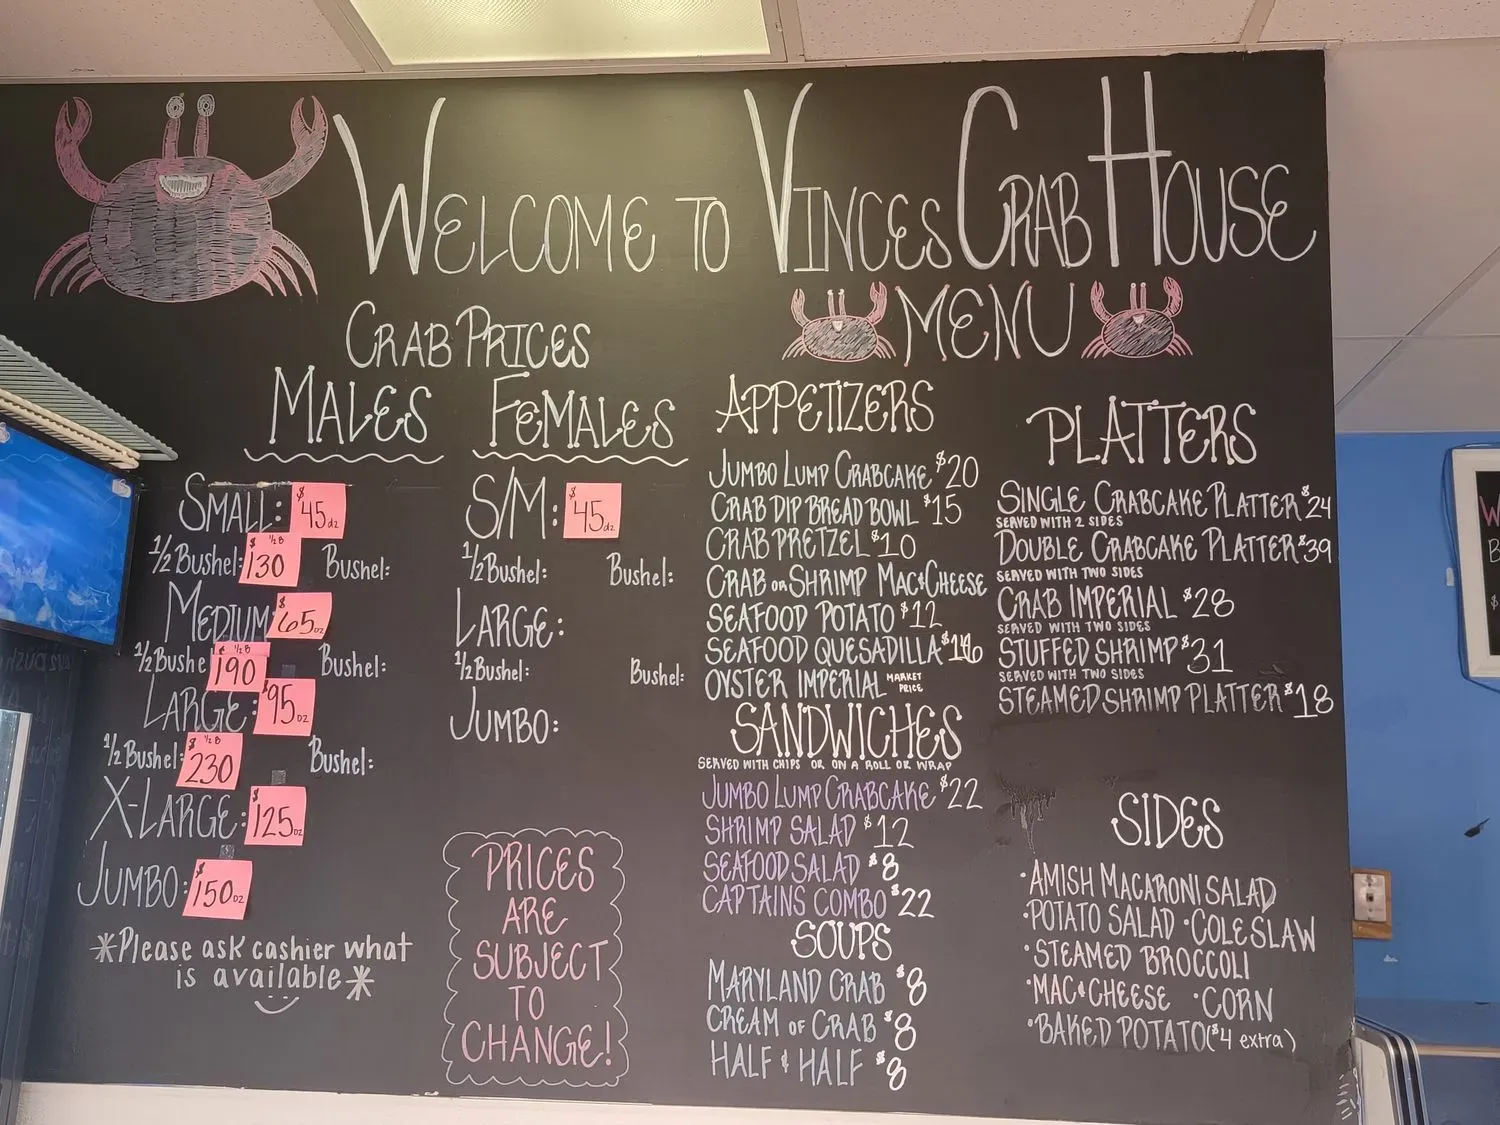 WELCOME TO VINCES CRAB HOUSE
CRAB PRICES
MALES
SMALL: $45 dz
1/2 Bushel: $130 1/2 B Bushel:
MEDIUM $65 DZ
1/2 Bushe $190 1/2 B Bushel:
LARGE: $95 DZ
1/2 Bushel: $230 1/2 B Bushel:
X-LARGE: $125 DZ
JUMBO: $150 DZ
*Please ask cashier what
is available*
FEMALES
S/M: $45 dz
1/2 Bushel: Bushel:
LARGE:
1/2 Bushel: Bushel:
JUMBO:
PRICES
ARE
SUBJECT
TO
CHANGE!
MENU
APPETIZERS
JUMBO LUMP CRABCAKE $20
CRAB DIP BREAD BOWL $15
CRAB PRETZEL $10
CRAB OR SHRIMP MAC & CHEESE
SEAFOOD POTATO $12
SEAFOOD QUESADILLA
OYSTER IMPERIAL MARKET PRICE
SANDWICHES
SERVED WITH CHIPS OR ON A ROLL OR WRAP
JUMBO LUMP CRABCAKE $22
SHRIMP SALAD $12
SEAFOOD SALAD $8
CAPTAINS COMBO $22
SOUPS
MARYLAND CRAB $8
CREAM OF CRAB $8
HALF & HALF $8
PLATTERS
SINGLE CRABCAKE PLATTER $24
SERVED WITH 2 SIDES
DOUBLE CRABCAKE PLATTER $39
SERVED WITH TWO SIDES
CRAB IMPERIAL $28
SERVED WITH TWO SIDES
STUFFED SHRIMP $31
SERVED WITH TWO SIDES
STEAMED SHRIMP PLATTER $18
SIDES
·AMISH MACARONI SALAD
·POTATO SALAD ·COLESLAW
·STEAMED BROCCOLI
·MAC & CHEESE ·CORN
·BAKED POTATO ($4 extra)